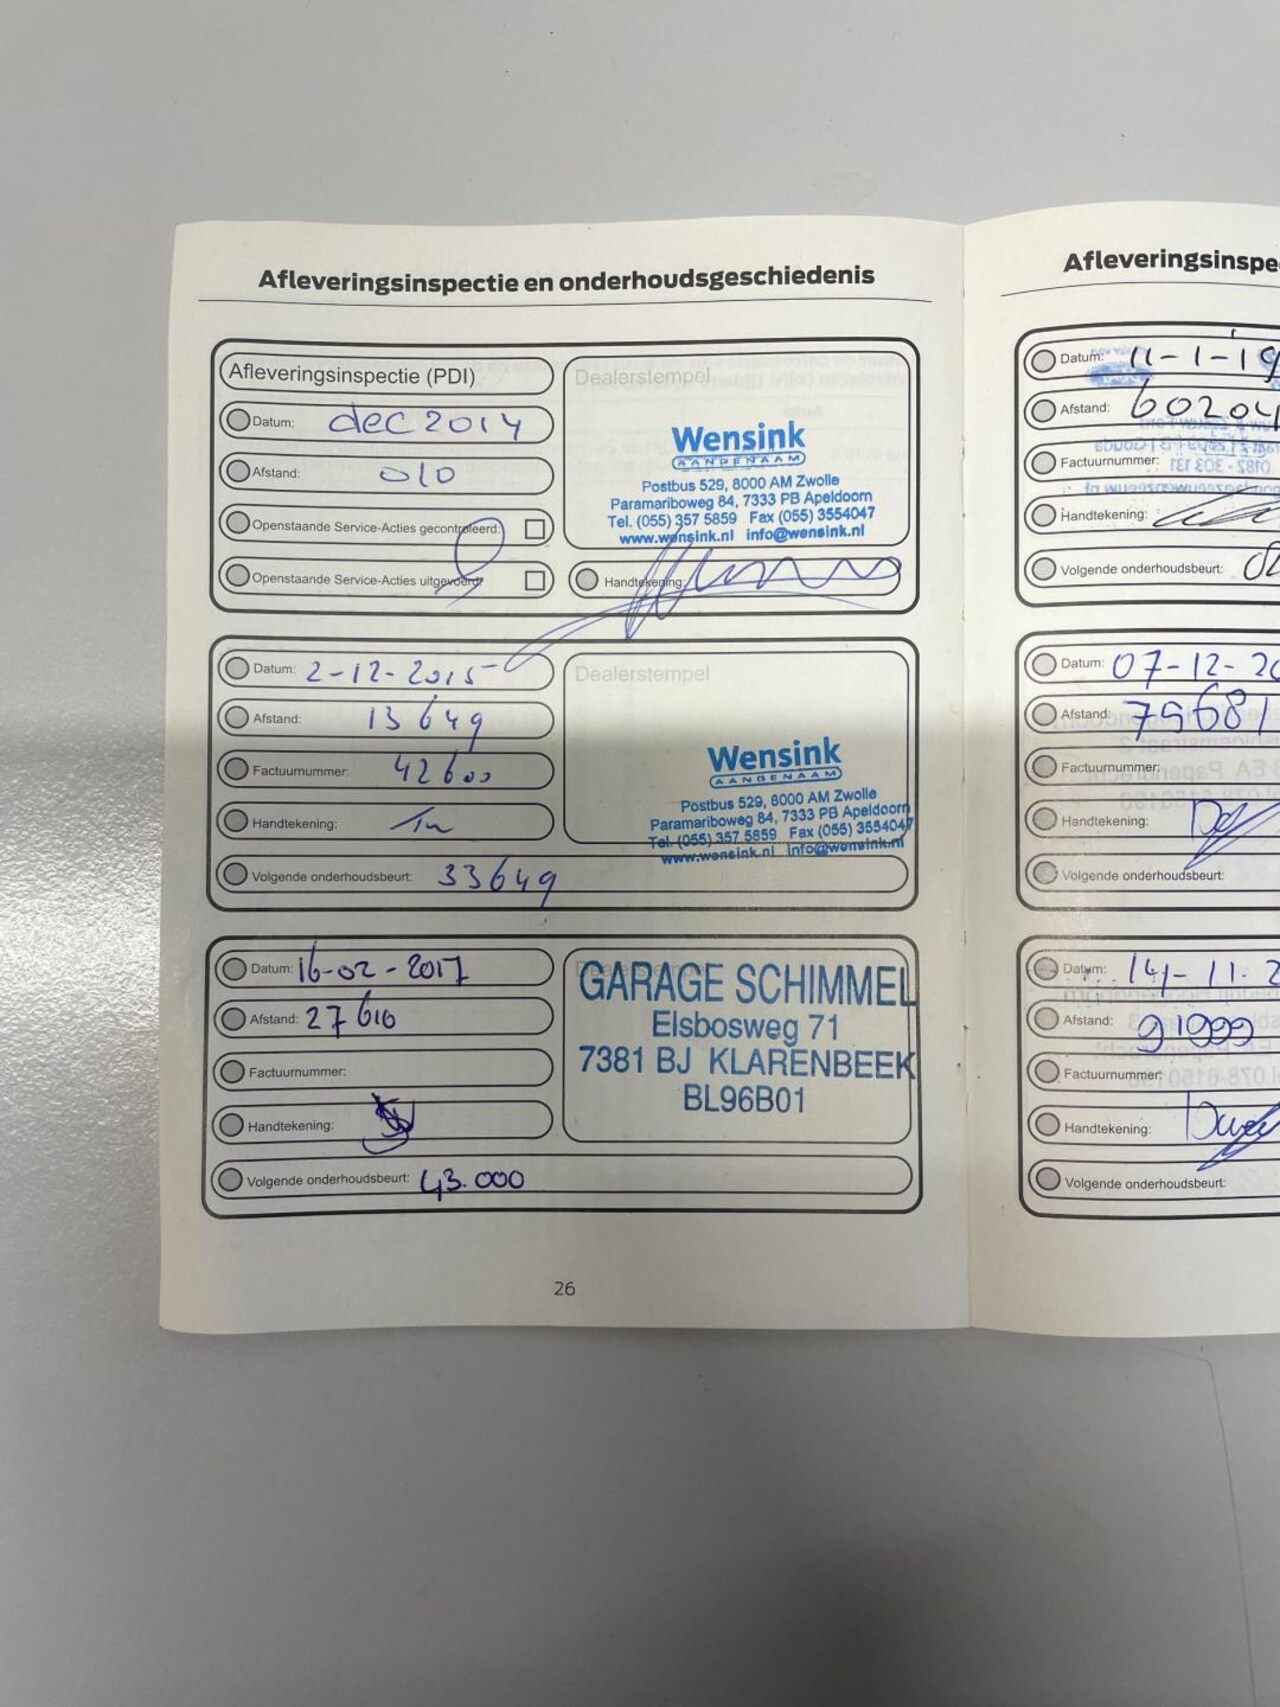 Afleveringsinspectie en onderhoudsgeschiedenis
Afleveringsinspectie (PDI)
Datum: dec 2014
Afstand: 010
Openstaande Service-Acties gecontroleerd:
Openstaande Service-Acties uitgevoerd:
Dealerstempel
Wensink
AANGENAAM
Postbus 529, 8000 AM Zwolle
Paramariboweg 84, 7333 PB Apeldoorn
Tel. (055) 357 5859 Fax (055) 3554047
www.wensink.nl info@wensink.nl
Handtekening:
Datum: 2-12-2015
Afstand: 13649
Factuurnummer: 42600
Handtekening:
Volgende onderhoudsbeurt: 33649
Dealerstempel
Wensink
AANGENAAM
Postbus 529, 8000 AM Zwolle
Paramariboweg 84, 7333 PB Apeldoorn
Tel. (055) 357 5859 Fax (055) 3554047
www.wensink.nl info@wensink.nl
Datum: 16-02-2017
Afstand: 27610
Factuurnummer:
Handtekening:
Volgende onderhoudsbeurt: 43.000
GARAGE SCHIMMEL
Elsbosweg 71
7381 BJ KLARENBEEK
BL96B01
26
Afleveringsinspe
Datum: 11-1-19
Afstand: 60204
Factuurnummer:
Handtekening:
Volgende onderhoudsbeurt:
Datum: 07-12-20
Afstand: 75681
Factuurnummer:
Handtekening:
Volgende onderhoudsbeurt:
Datum: 14-11-2
Afstand: 91099
Factuurnummer:
Handtekening:
Volgende onderhoudsbeurt: